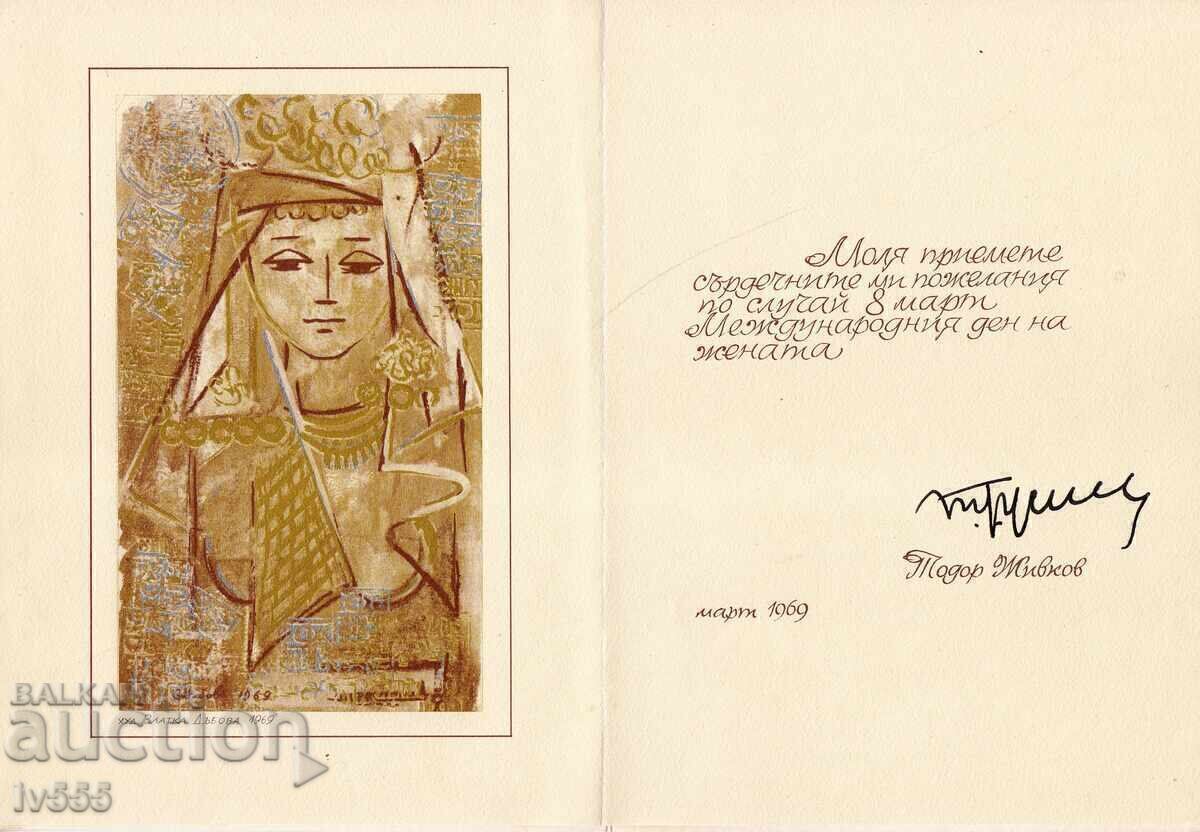 1969
худ. Златка Дъбова 1969
BALKAN
auction
lv555
Моля приемете
сърдечните ми пожелания
по случай 8 март
Международния ден на
жената
Тодор Живков
март 1969